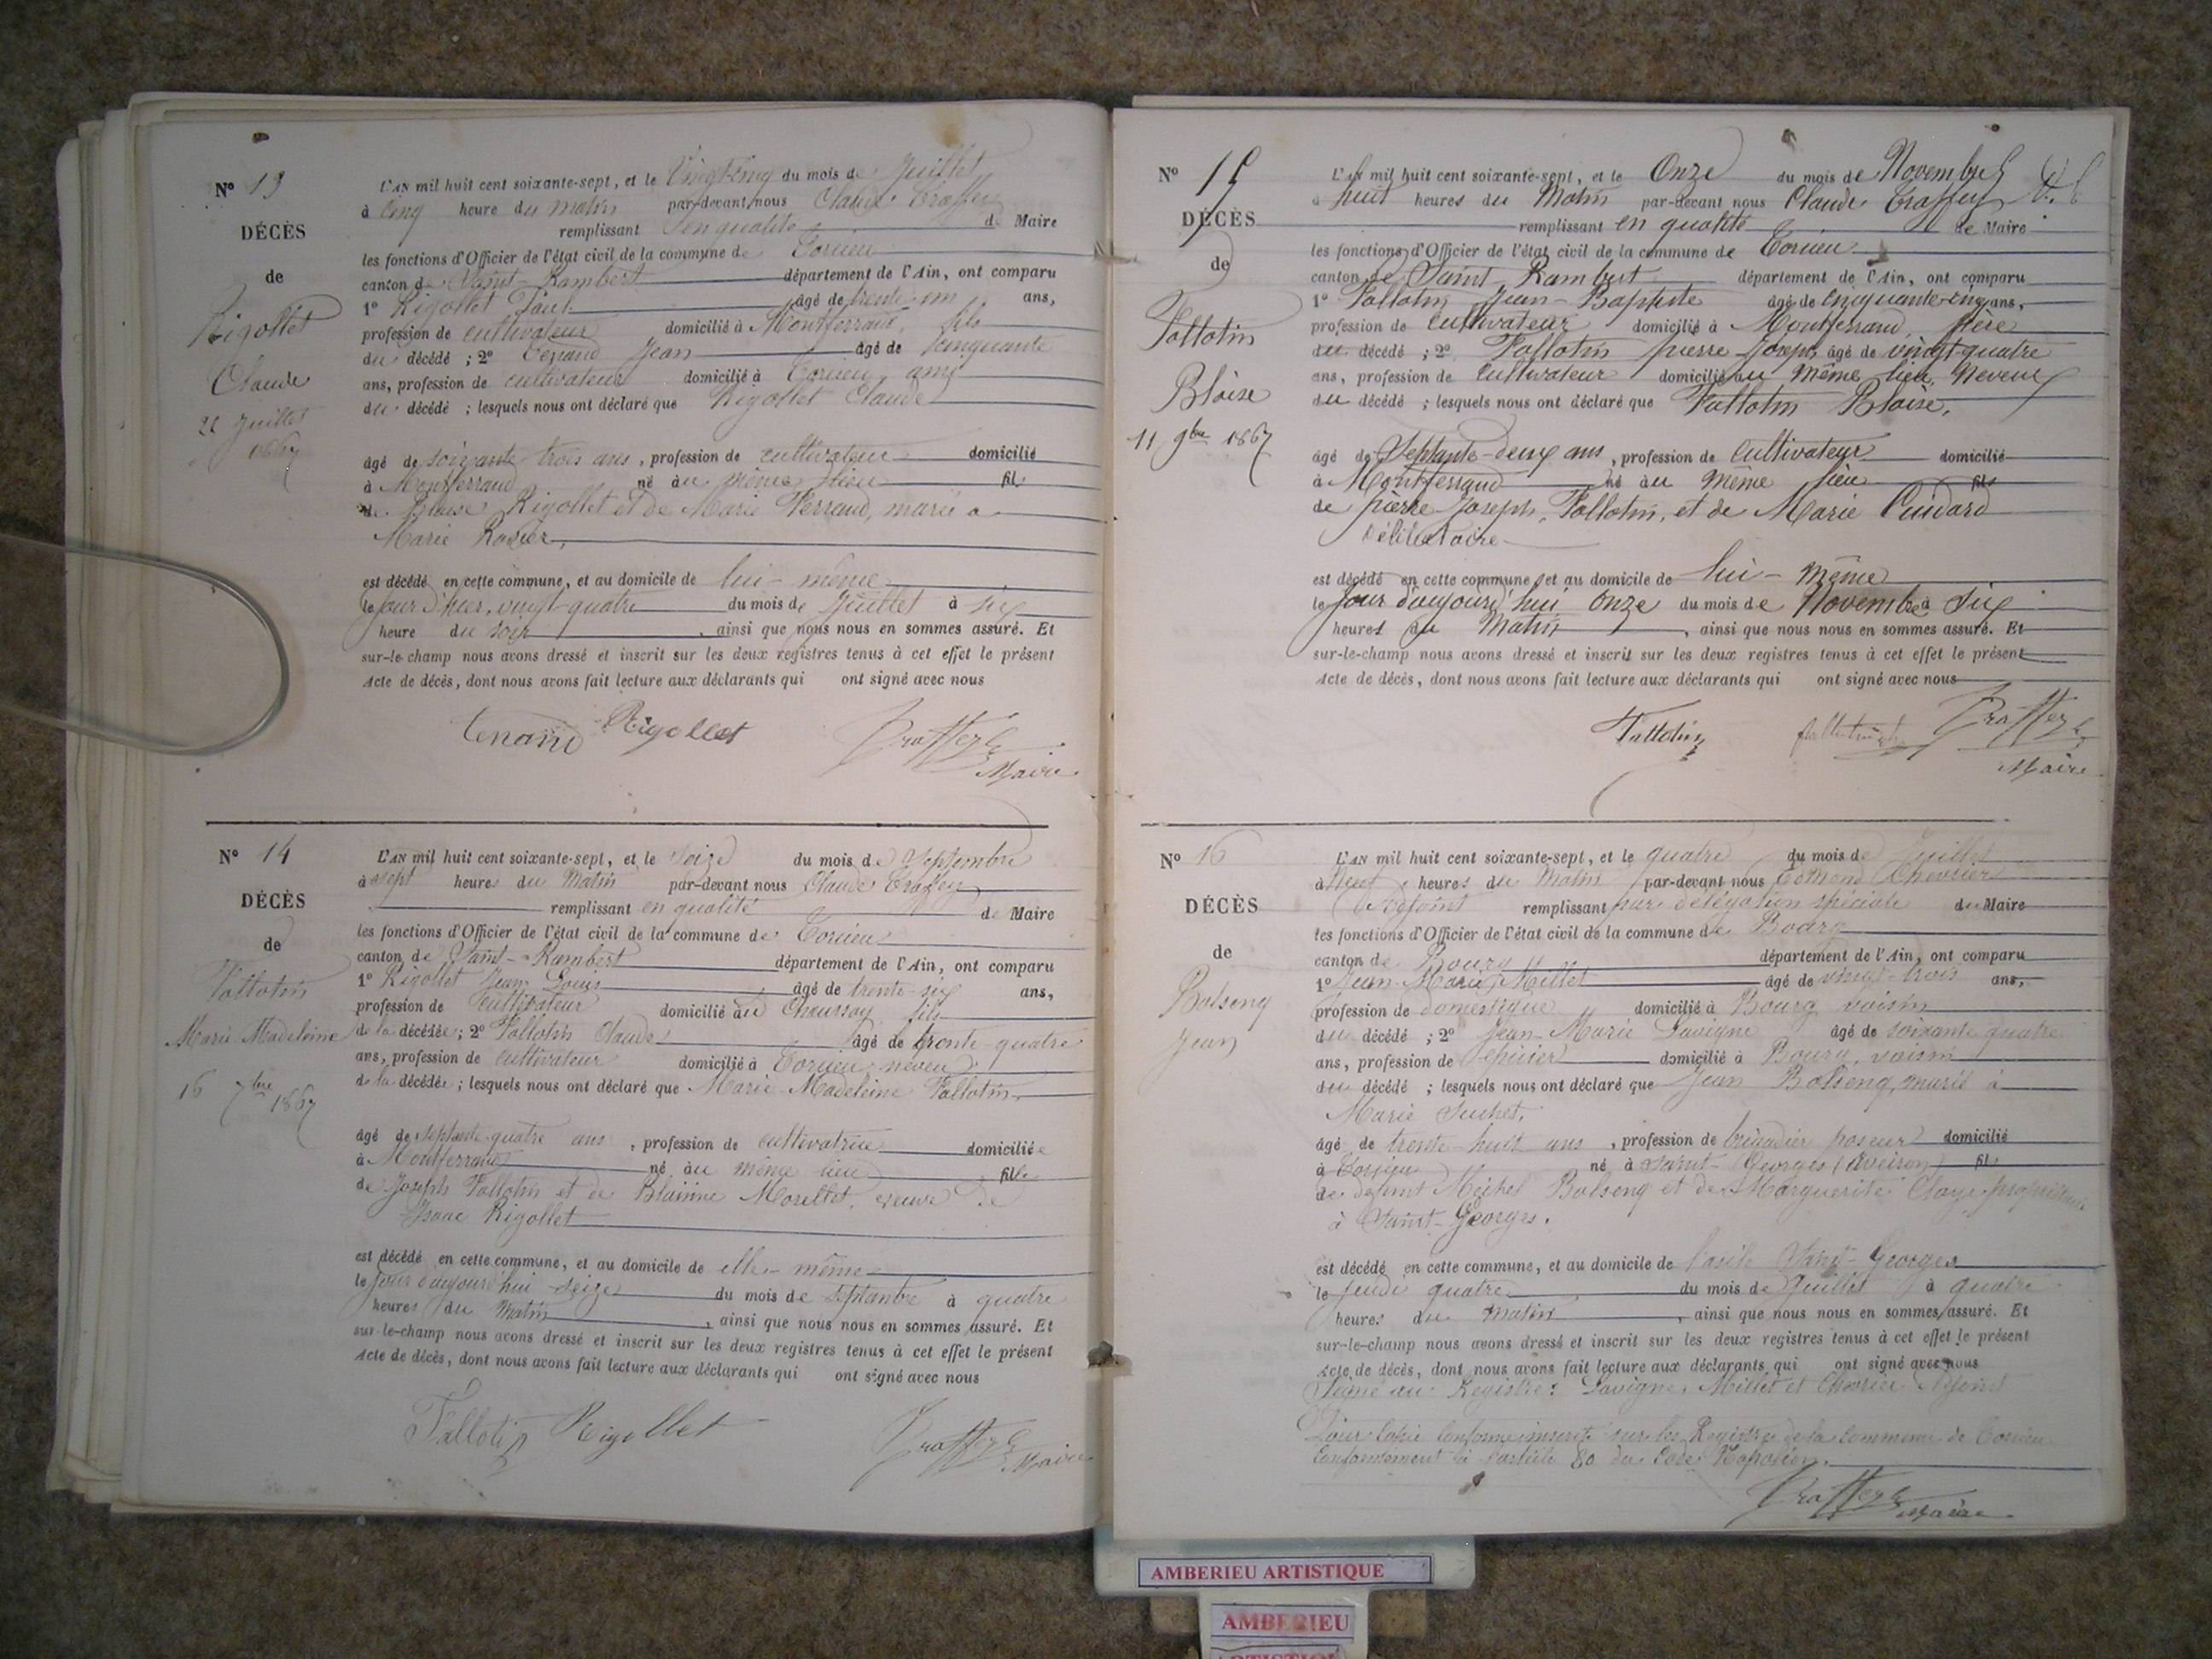 N° 13
DÉCÈS
de
Rigollet
Claude
Juillet
1867
L'AN mil huit cent soixante-sept, et le Vingt-cinq du mois de Juillet
à cinq heure du matin par-devant nous Claude Traffey
remplissant en qualité de Maire
les fonctions d'Officier de l'état civil de la commune de Torcieu
canton de Saint-Rambert département de l'Ain, ont comparu
1° Rigollet Paul âgé de trente un ans,
profession de cultivateur domicilié à Montferrand, fils
du décédé ; 2° Tenand Jean âgé de cinquante
ans, profession de cultivateur domicilié à Torcieu, ami
du décédé ; lesquels nous ont déclaré que Rigollet Claude
âgé de soixante trois ans, profession de cultivateur domicilié
à Montferrand né au même lieu fils
de Blaise Rigollet et de Marie Ferrand, marié à
Marie Ravier,
est décédé en cette commune, et au domicile de lui-même
le jour d'hier, vingt-quatre du mois de Juillet à six
heure du soir, ainsi que nous nous en sommes assuré. Et
sur-le-champ nous avons dressé et inscrit sur les deux registres tenus à cet effet le présent
Acte de décès, dont nous avons fait lecture aux déclarants qui ont signé avec nous
Tenand Rigollet Traffey
Maire
N° 14
DÉCÈS
de
Follotin
Marie Madeleine
16 7bre 1867
L'AN mil huit cent soixante-sept, et le Seize du mois de Septembre
à sept heures du Matin par-devant nous Claude Traffey
remplissant en qualité de Maire
les fonctions d'Officier de l'état civil de la commune de Torcieu
canton de Saint-Rambert département de l'Ain, ont comparu
1° Rigollet Jean Louis âgé de trente-six ans,
profession de cultivateur domicilié au Chaussay fils
de la décédée ; 2° Follotin Claude âgé de trente-quatre
ans, profession de cultivateur domicilié à Torcieu neveu
de la décédée ; lesquels nous ont déclaré que Marie-Madeleine Follotin,
âgé de septante-quatre ans, profession de cultivatrice domiciliée
à Montferrand né au même lieu fille
de Joseph Follotin et de Blaisine Morellet, veuve de
Isaac Rigollet
est décédé en cette commune, et au domicile de elle-même
le jour d'aujourd'hui seize du mois de septembre à quatre
heures du Matin, ainsi que nous nous en sommes assuré. Et
sur-le-champ nous avons dressé et inscrit sur les deux registres tenus à cet effet le présent
Acte de décès, dont nous avons fait lecture aux déclarants qui ont signé avec nous
Follotin Rigollet Traffey
Maire
N° 15
DÉCÈS
de
Follotin
Blaise
11 9bre 1867
L'AN mil huit cent soixante-sept, et le Onze du mois de Novembre
à huit heures du Matin par-devant nous Claude Traffey
remplissant en qualité de Maire
les fonctions d'Officier de l'état civil de la commune de Torcieu
canton de Saint-Rambert département de l'Ain, ont comparu
1° Follotin Jean-Baptiste âgé de cinquante-cinq ans,
profession de cultivateur domicilié à Montferrand, frère
du décédé ; 2° Follotin pierre Joseph âgé de vingt-quatre
ans, profession de cultivateur domicilié au même lieu, Neveu
du décédé ; lesquels nous ont déclaré que Follotin Blaise,
âgé de Septante-deux ans, profession de cultivateur domicilié
à Montferrand né au même lieu fils
de pierre-Joseph Follotin, et de Marie Cuidard
célibataire
est décédé en cette commune, et au domicile de lui-même
le jour d'aujourd'hui Onze du mois de Novembre à Six
heures du Matin, ainsi que nous nous en sommes assuré. Et
sur-le-champ nous avons dressé et inscrit sur les deux registres tenus à cet effet le présent
Acte de décès, dont nous avons fait lecture aux déclarants qui ont signé avec nous
Follotin Traffey
Maire
N° 16
DÉCÈS
de
Bolseng
Jean
L'AN mil huit cent soixante-sept, et le quatre du mois de Juillet
à Neuf heures du Matin par-devant nous Edmond Chevrier
adjoint remplissant par délégation spéciale du Maire
les fonctions d'Officier de l'état civil de la commune de Bourg
canton de Bourg département de l'Ain, ont comparu
1° Jean-Marie Millet âgé de vingt-trois ans,
profession de domestique domicilié à Bourg voisin
du décédé ; 2° Jean-Marie Lavigne âgé de soixante quatre
ans, profession de épicier domicilié à Bourg, voisin
du décédé ; lesquels nous ont déclaré que Jean Bolseng, marié à
Marie Suchet,
âgé de trente-huit ans, profession de brigadier poseur domicilié
à Torcieu né à Saint-Georges (Aveiron) fils
de défunt Michel Bolseng et de Marguerite
à Saint-Georges.
est décédé en cette commune, et au domicile de l'asile Saint-Georges
le jeudi quatre du mois de Juillet à quatre
heures du matin, ainsi que nous nous en sommes assuré. Et
sur-le-champ nous avons dressé et inscrit sur les deux registres tenus à cet effet le présent
Acte de décès, dont nous avons fait lecture aux déclarants qui ont signé avec nous
Signé au Registre : Lavigne, Millet et Chevrier Adjoint
Pour Copie Conforme inscrite sur les Registres de la Commune de Torcieu
Conformément à l'article 80 du Code Napoléon.
Traffey
Maire
AMBERIEU ARTISTIQUE
AMBERIEU
ARTISTIQUE